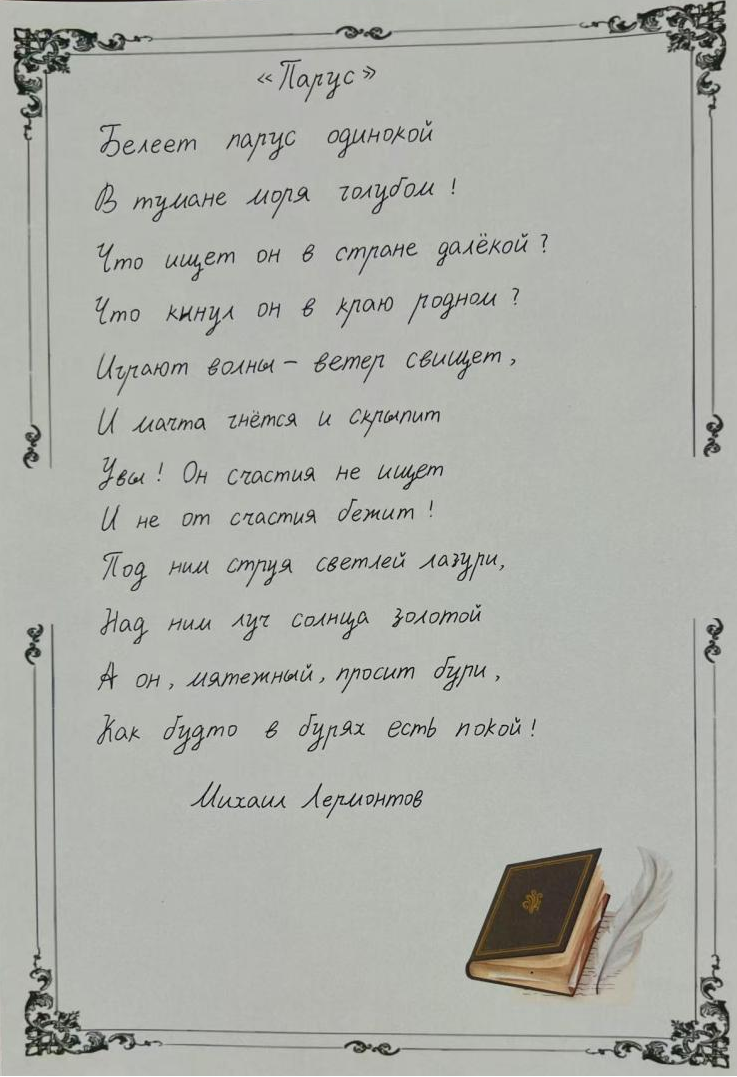 «Парус»
Белеет парус одинокой
В тумане моря голубом!
Что ищет он в стране далёкой?
Что кинул он в краю родном?
Играют волны – ветер свищет,
И мачта гнётся и скрыпит
Увы! Он счастия не ищет
И не от счастия бежит!
Под ним струя светлей лазури,
Над ним луч солнца золотой
А он, мятежный, просит бури,
Как будто в бурях есть покой!
Михаил Лермонтов